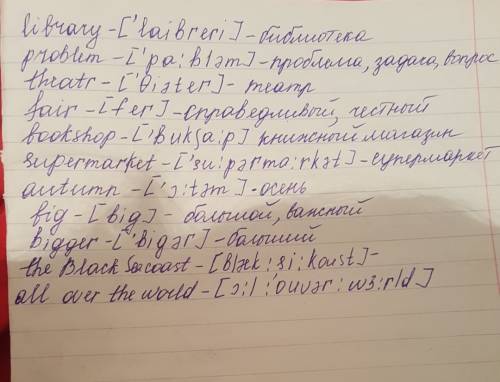 library-['laibreri]-библиотека
problem-['pa:bləm]-проблема, задача, вопрос
theatr-['θiəter]-театр
fair-[fer]-справедливый, честный
bookshop-['bukʂa:p] книжный магазин
supermarket-['su:pərma:rkət]-супермаркет
autumn-['ɔ:təm]-осень
big-[big]-большой, важный
bigger-['bigər]-больший
the Black Sea coast-[blæk:si:koust]-
all over the world-[ɔ:l:'ouvər:wɜ:rld]